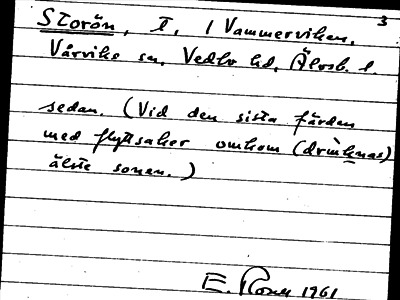 3
Storön, T, i Vammerviken,
Vårviks sn, Vedbo hd, Älvsb. l.
sedan. (Vid den sista färden
med flyttsaker omkom (drunknas)
älste sonen.)
E. 1961